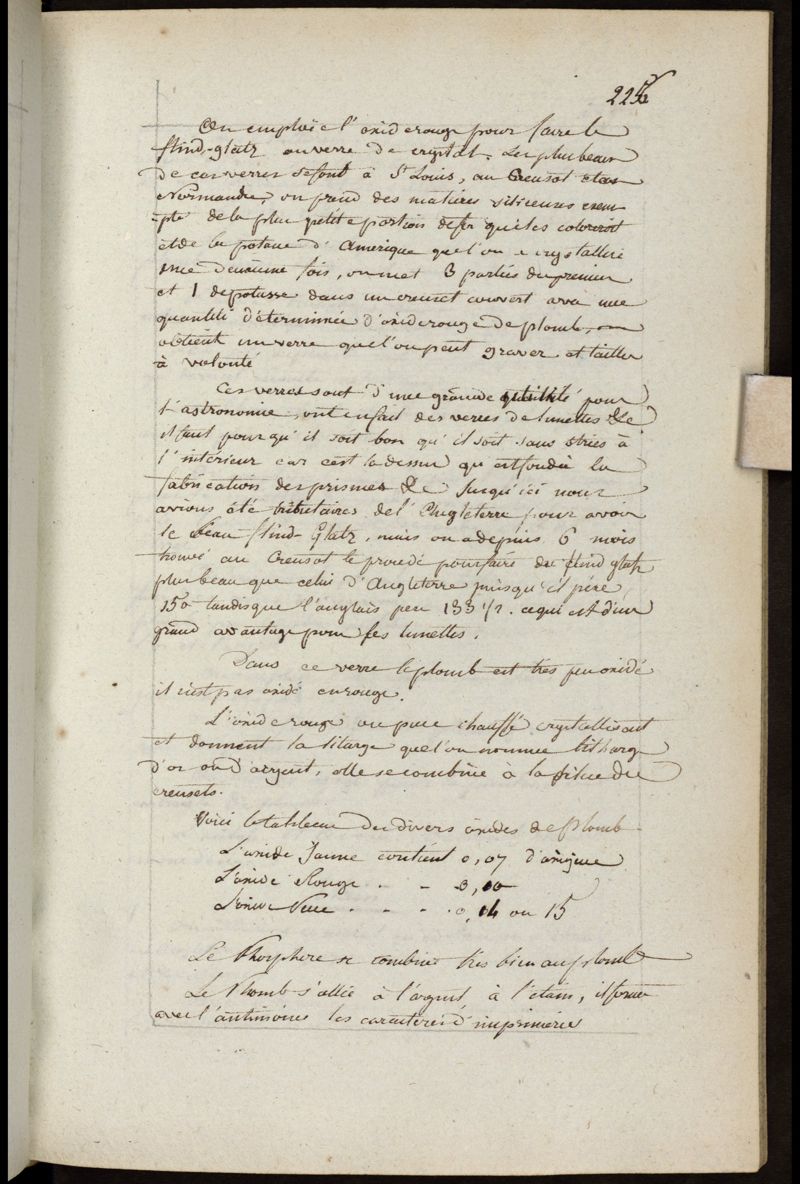 225
On emploie l'oxide rouge pour faire le
flind-glatz ou verre de crystal. Les plus beaux
de ces verres se font à St Louis, au Creusot et en
Normandie, on prend des matières siliceuses exem
pte de la plus petite portion de fer qui les coloreroit
et de la potasse d'Amerique que l'on a crystallisé
une deuxième fois, on met 3 parties du premier
et 1 de potasse dans un creuset couvert avec une
quantité déterminée d'oxide rouge de plomb, on
obtient un verre que l'on peut graver et tailler
à volonté
Ces verres sont d'une grande utilité pour
l'astronomie, on en fait des verres de lunettes &c
il faut pour qu'il soit bon qu'il soit sans stries à
l'intérieur car c'est la dessus qu'est fondée la
fabrication des prismes &c Jusqu'ici nous
avions été tributaires de l'Angleterre pour avoir
le beau flind-Glatz, mais on a depuis 6 mois
trouvé au Creusot le procédé pour faire du flind glatz
plus beau que celui d'Angleterre puisqu'il pése
150 tandis que l'anglais pese 133 1/2. ce qui est d'un
grand avantage pour les lunettes.
Dans ce verre le plomb est très peu oxidé
il n'est pas oxidé en rouge.
L'oxide rouge ou puce chauffé crystallisent
et donnent la litarge que l'on nomme litharge
d'or ou d'argent, elle se combine à la silice du
creusets.
Voici le tableau des divers oxides de plomb
L'oxide Jaune contient 0,07 d'oxigène
L'oxide Rouge . - 0,10
L'oxide Puce . - - . 0,14 ou 15
Le Phosphore se combine très bien au plomb
Le Plomb s'allie à l'argent à l'étain, il forme
avec l'antimoine les caractères d'imprimerie